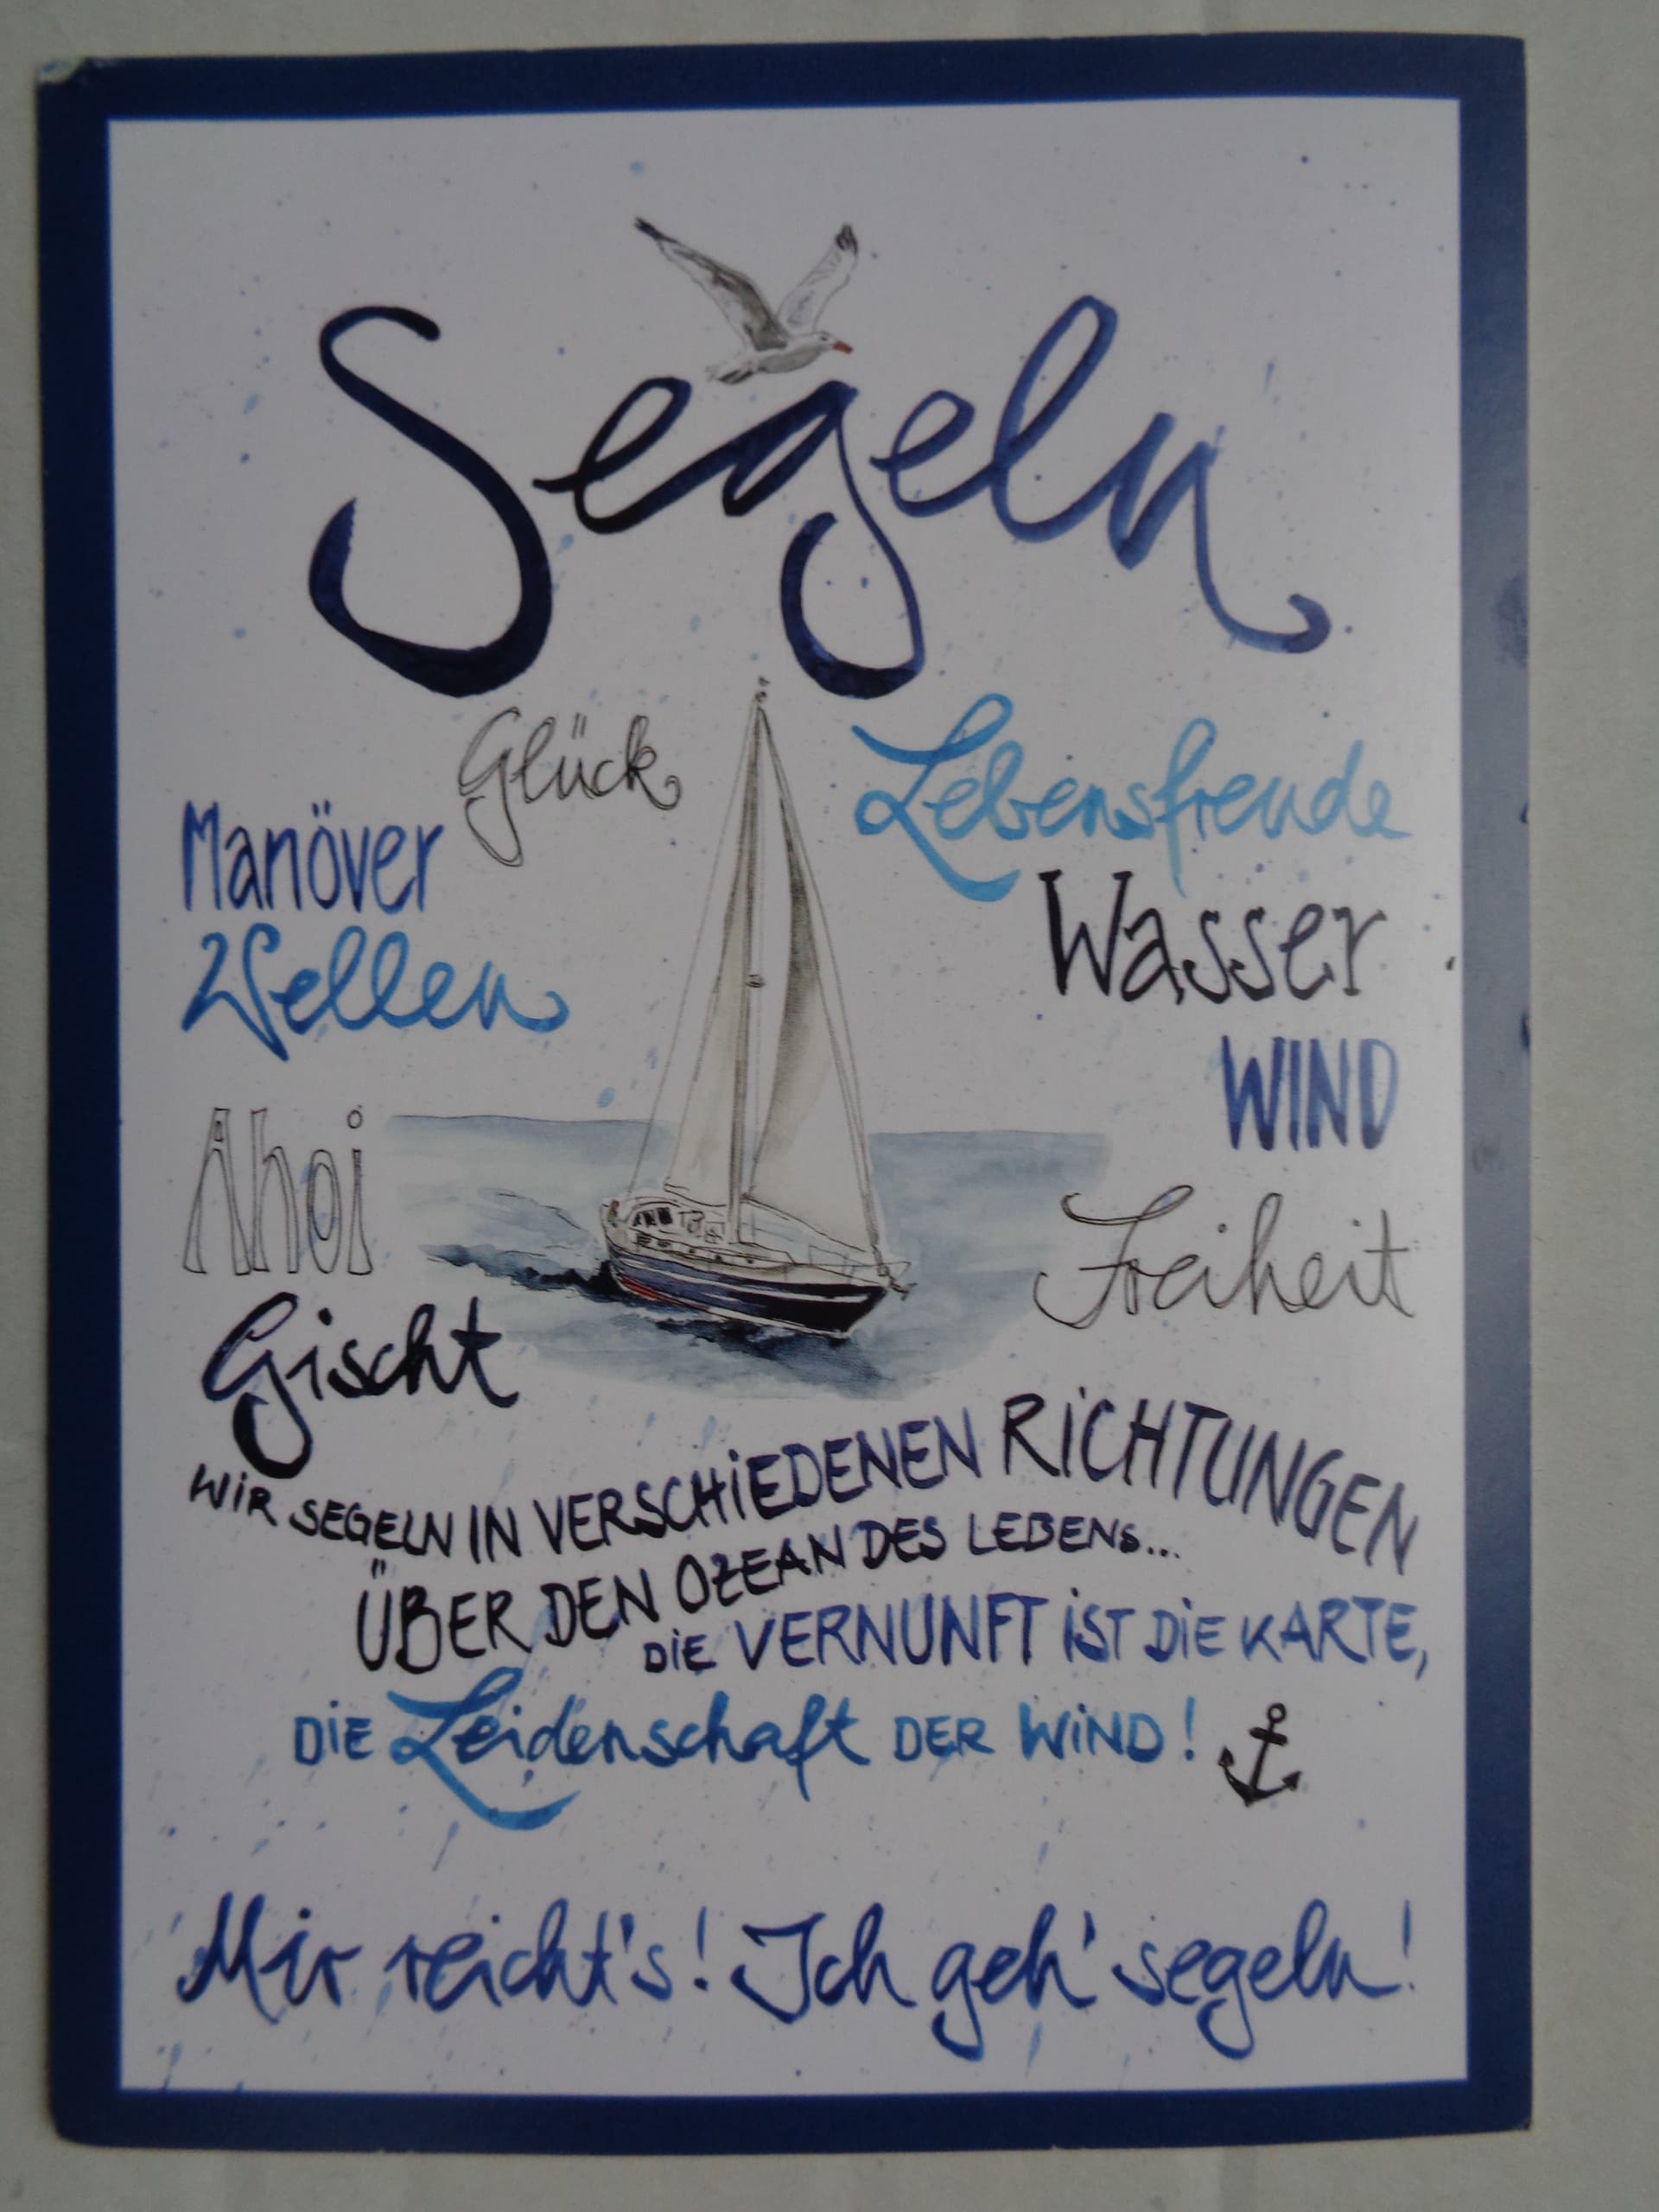 Segeln
Glück
Lebensfreude
Manöver
Wasser
Wellen
WIND
Ahoi
Freiheit
Gischt
WiR SEGELN IN VERSCHiEDENEN RiCHTUNGEN
ÜBER DEN OZEAN DES LEBENS...
DiE VERNUNFT iST DiE KARTE,
DiE Leidenschaft DER WiND!
Mir reicht's! Ich geh' segeln!